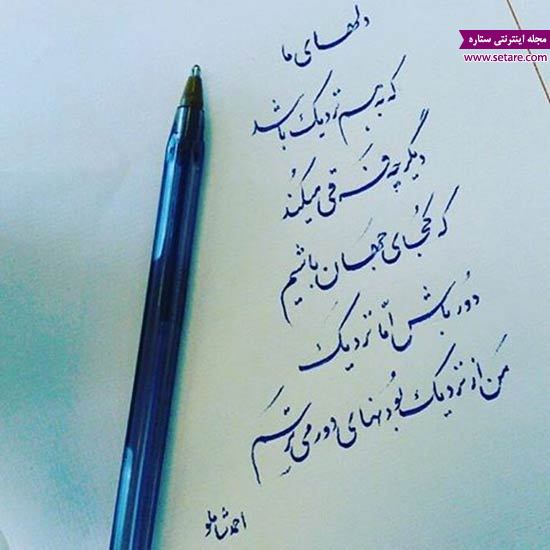 مجله اینترنتی ستاره
www.setare.com
دلهای ما
که به هم نزدیک باشد
دیگر چه فرقی میکند
که کجای جهان باشیم
دور باش امّا نزدیک
من از نزدیک بودنهای دور می ترسم
احمد شاملو